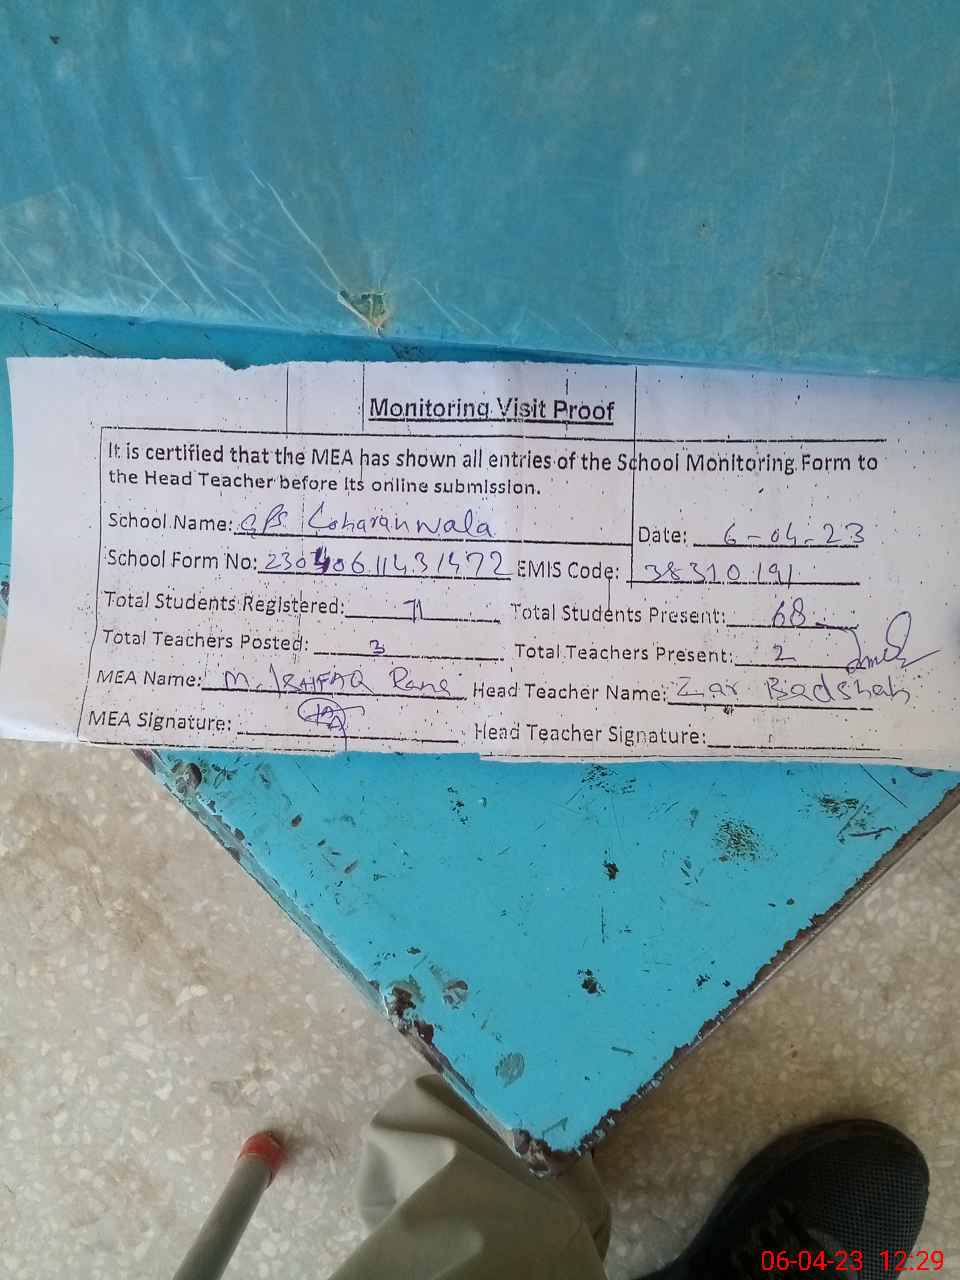 Monitoring Visit Proof
It is certified that the MEA has shown all entries of the School Monitoring Form to
the Head Teacher before its online submission.
School Name: GPS Coharanwala Date: 6-04-23
School Form No: 23040611431472 EMIS Code: 38310191
Total Students Registered: 71 Total Students Present: 68
Total Teachers Posted: 3 Total Teachers Present: 2
MEA Name: M. ISHFAQ Rana Head Teacher Name: Zar Badshah
MEA Signature: Head Teacher Signature:
06-04-23 12:29